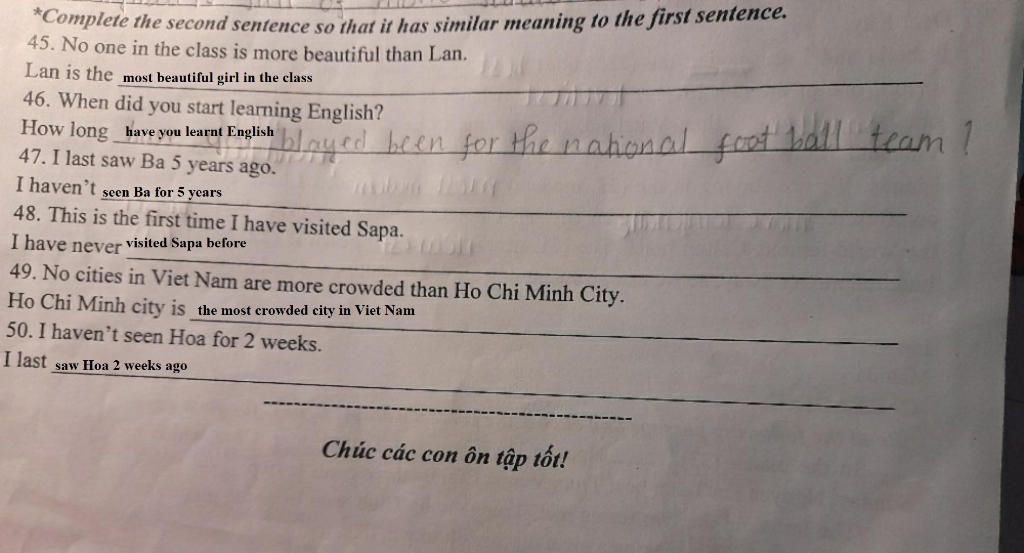 *Complete the second sentence so that it has similar meaning to the first sentence.
45. No one in the class is more beautiful than Lan.
Lan is the most beautiful girl in the class
46. When did you start learning English?
How long have you learnt English played been for the national foot ball team ?
47. I last saw Ba 5 years ago.
I haven't seen Ba for 5 years
48. This is the first time I have visited Sapa.
I have never visited Sapa before
49. No cities in Viet Nam are more crowded than Ho Chi Minh City.
Ho Chi Minh city is the most crowded city in Viet Nam
50. I haven't seen Hoa for 2 weeks.
I last saw Hoa 2 weeks ago
Chúc các con ôn tập tốt!